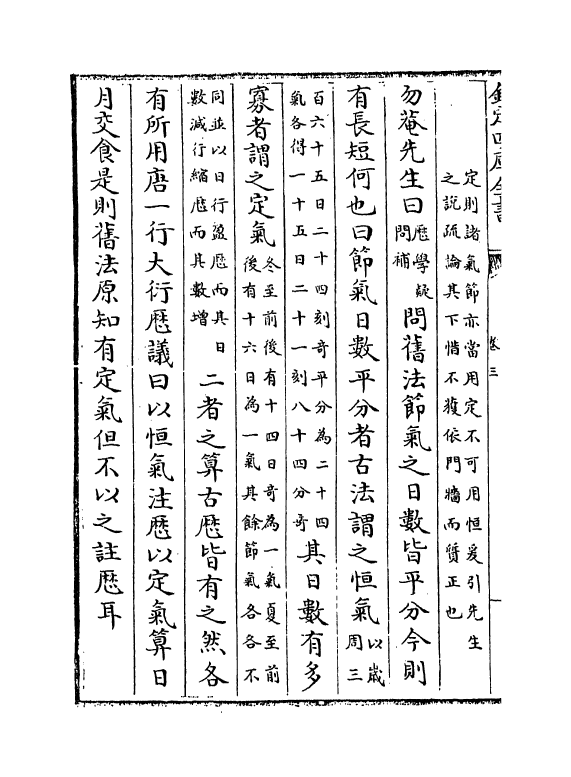 欽定四庫全書
卷三
定則諸氣節亦當用定不可用恒爰引先生
之說疏論其下惜不獲依門牆而質正也
勿菴先生曰歷學疑問補問舊法節氣之日數皆平分今則
有長短何也曰節氣日數平分者古法謂之恒氣以歲周三
百六十五日二十四刻奇平分為二十四
氣各得一十五日二十一刻八十四分奇其日數有多
寡者謂之定氣冬至前後有十四日奇為一氣夏至前後有十六日為一氣其餘節氣各各不
同並以日行盈歷而其日數減行縮歷而其數增二者之算古歷皆有之然各
有所用唐一行大衍歷議曰以恒氣注歷以定氣算日
月交食是則舊法原知有定氣但不以之註歷耳